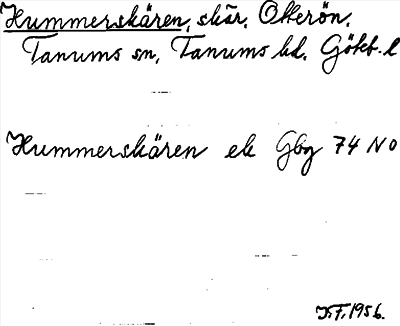 Hummerskären, skär, Otterön,
Tanums sn, Tanums hd. Göteb. l
Hummerskären ek Gbg 74 NO
K.F. 1956.